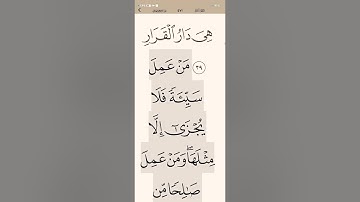 هِيَ دَارُ ٱلْقَرَارِ
٣٩ مَنْ عَمِلَ
سَيِّئَةً فَلَا
يُجْزَىٰٓ إِلَّا
مِثْلَهَاۖ وَمَنْ عَمِلَ
صَـٰلِحًا مِّن